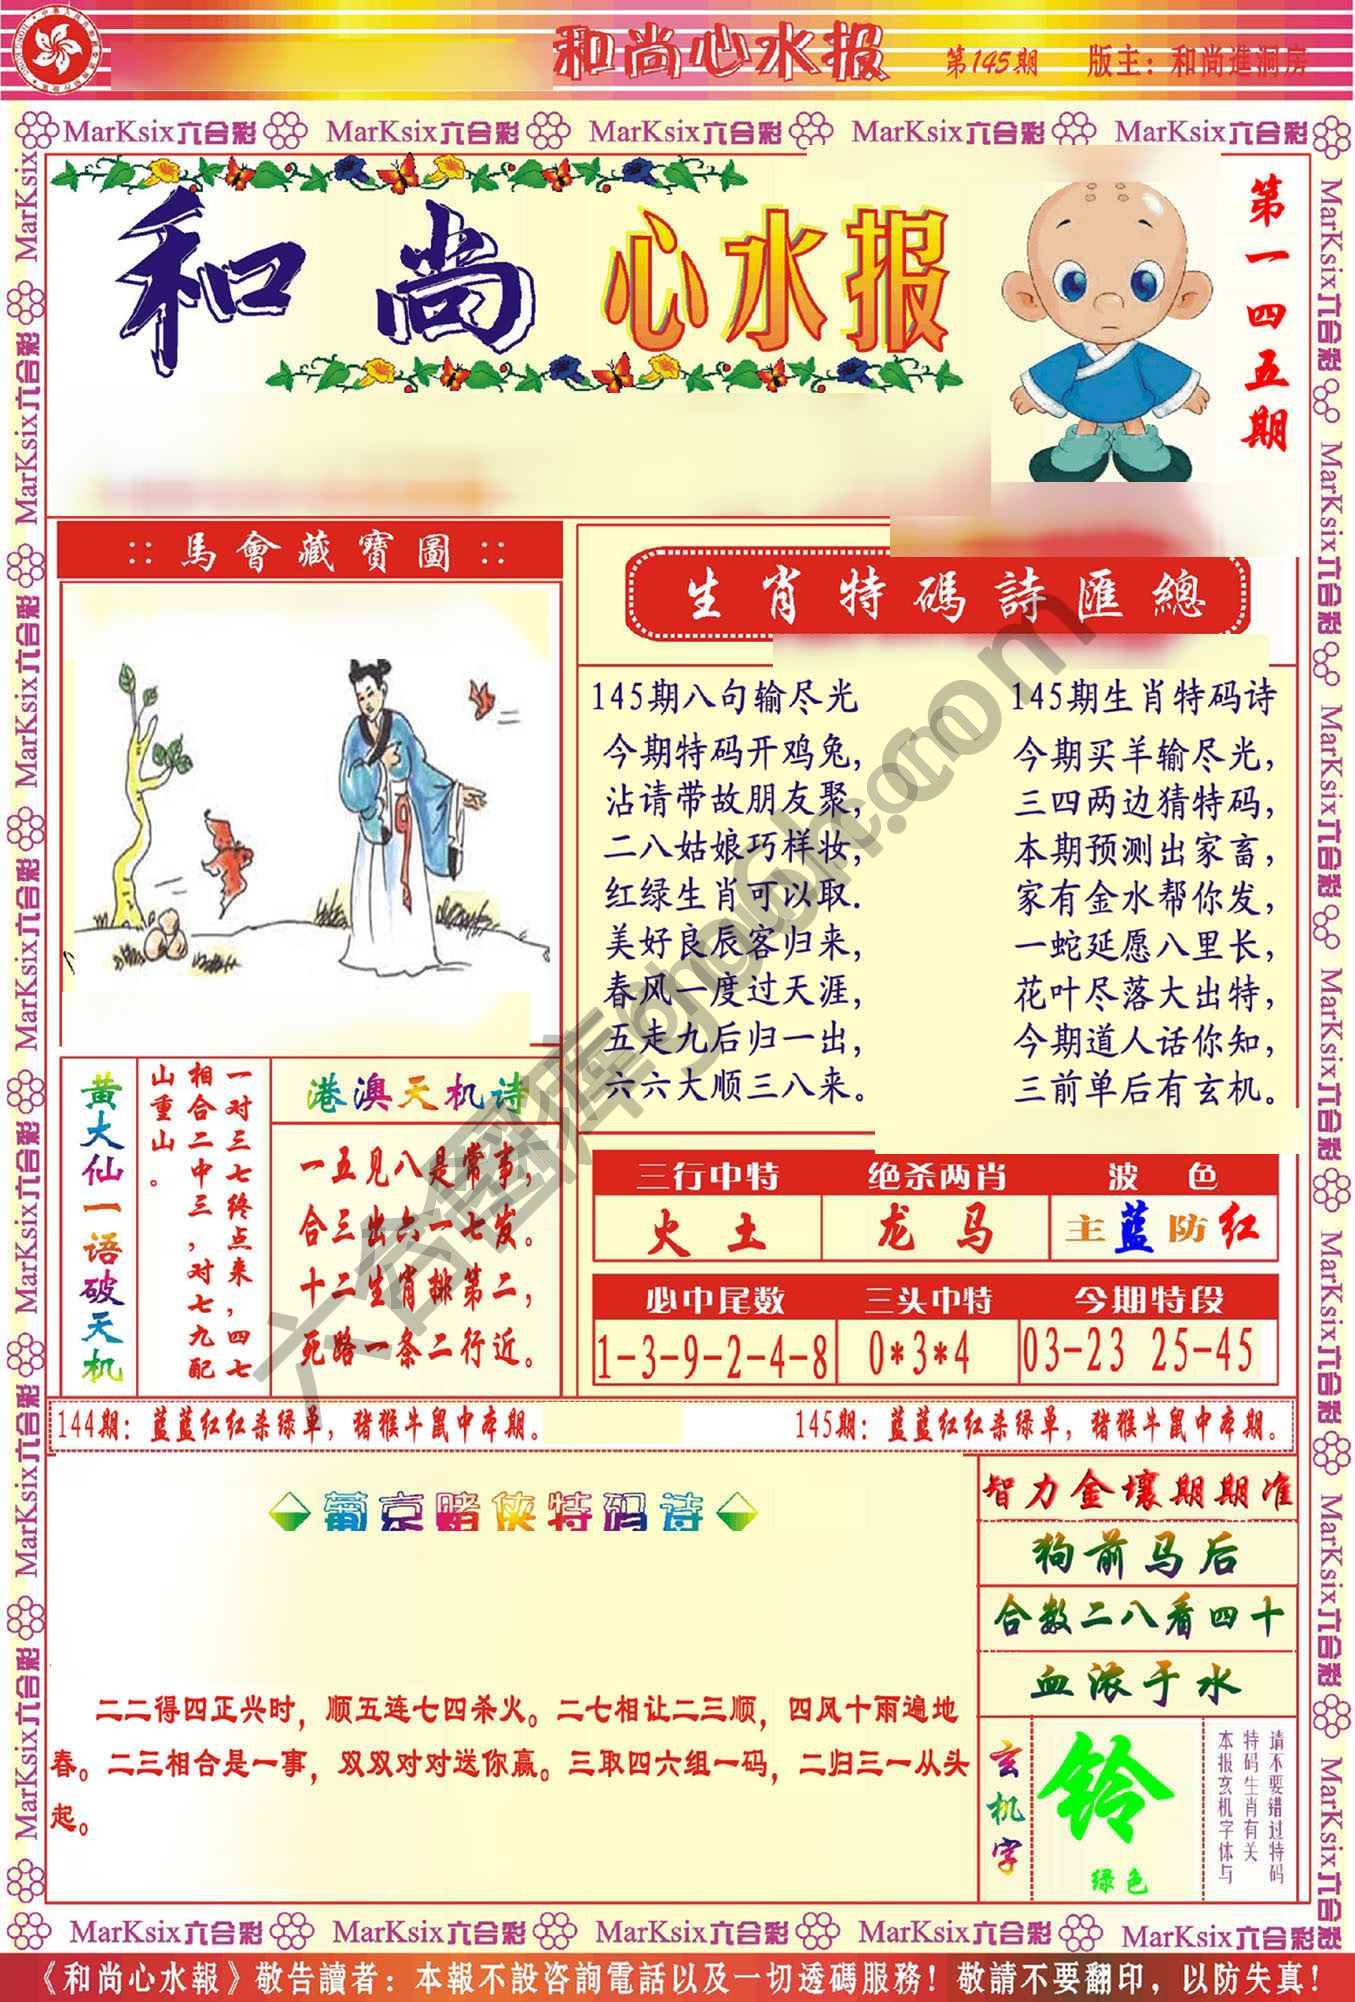 和尚心水报 第145期 版主：和尚進洞房
MarKsix六合彩 MarKsix六合彩 MarKsix六合彩 MarKsix六合彩 MarKsix六合彩
和尚心水报
第一四五期
::馬會藏寶圖::
生肖特碼詩匯總
145期八句输尽光
今期特码开鸡兔，
沾请带故朋友聚，
二八姑娘巧样妆，
红绿生肖可以取.
美好良辰客归来，
春风一度过天涯，
五走九后归一出，
六六大顺三八来。
145期生肖特码诗
今期买羊输尽光，
三四两边猜特码，
本期预测出家畜，
家有金水帮你发，
一蛇延愿八里长，
花叶尽落大出特，
今期道人话你知，
三前单后有玄机。
黄大仙一语破天机
一对三七终点来，四七
相合二中三，对七九配
山重山。
港澳天机诗
一五见八是常事，
合三出六一七发。
十二生肖排第二，
死路一条二行近。
三行中特 绝杀两肖 波色
火土 龙马 主蓝防红
必中尾数 三头中特 今期特段
1-3-9-2-4-8 0*3*4 03-23 25-45
144期：蓝蓝红红杀绿单，猪猴牛鼠中本期。 145期：蓝蓝红红杀绿单，猪猴牛鼠中本期。
葡京赌侠特码诗
二二得四正兴时，顺五连七四杀火。二七相让二三顺，四风十雨遍地
春。二三相合是一事，双双对对送你赢。三取四六组一码，二归三一从头
起。
智力金壤期期准
狗前马后
合数二八看四十
血浓于水
玄机字
铃
绿色
请不要错过特码
特码生肖有关
本报玄机字体与
MarKsix六合彩 MarKsix六合彩 MarKsix六合彩 MarKsix六合彩 MarKsix六合彩
《和尚心水報》敬告讀者：本報不設咨詢電話以及一切透碼服務！敬請不要翻印，以防失真！